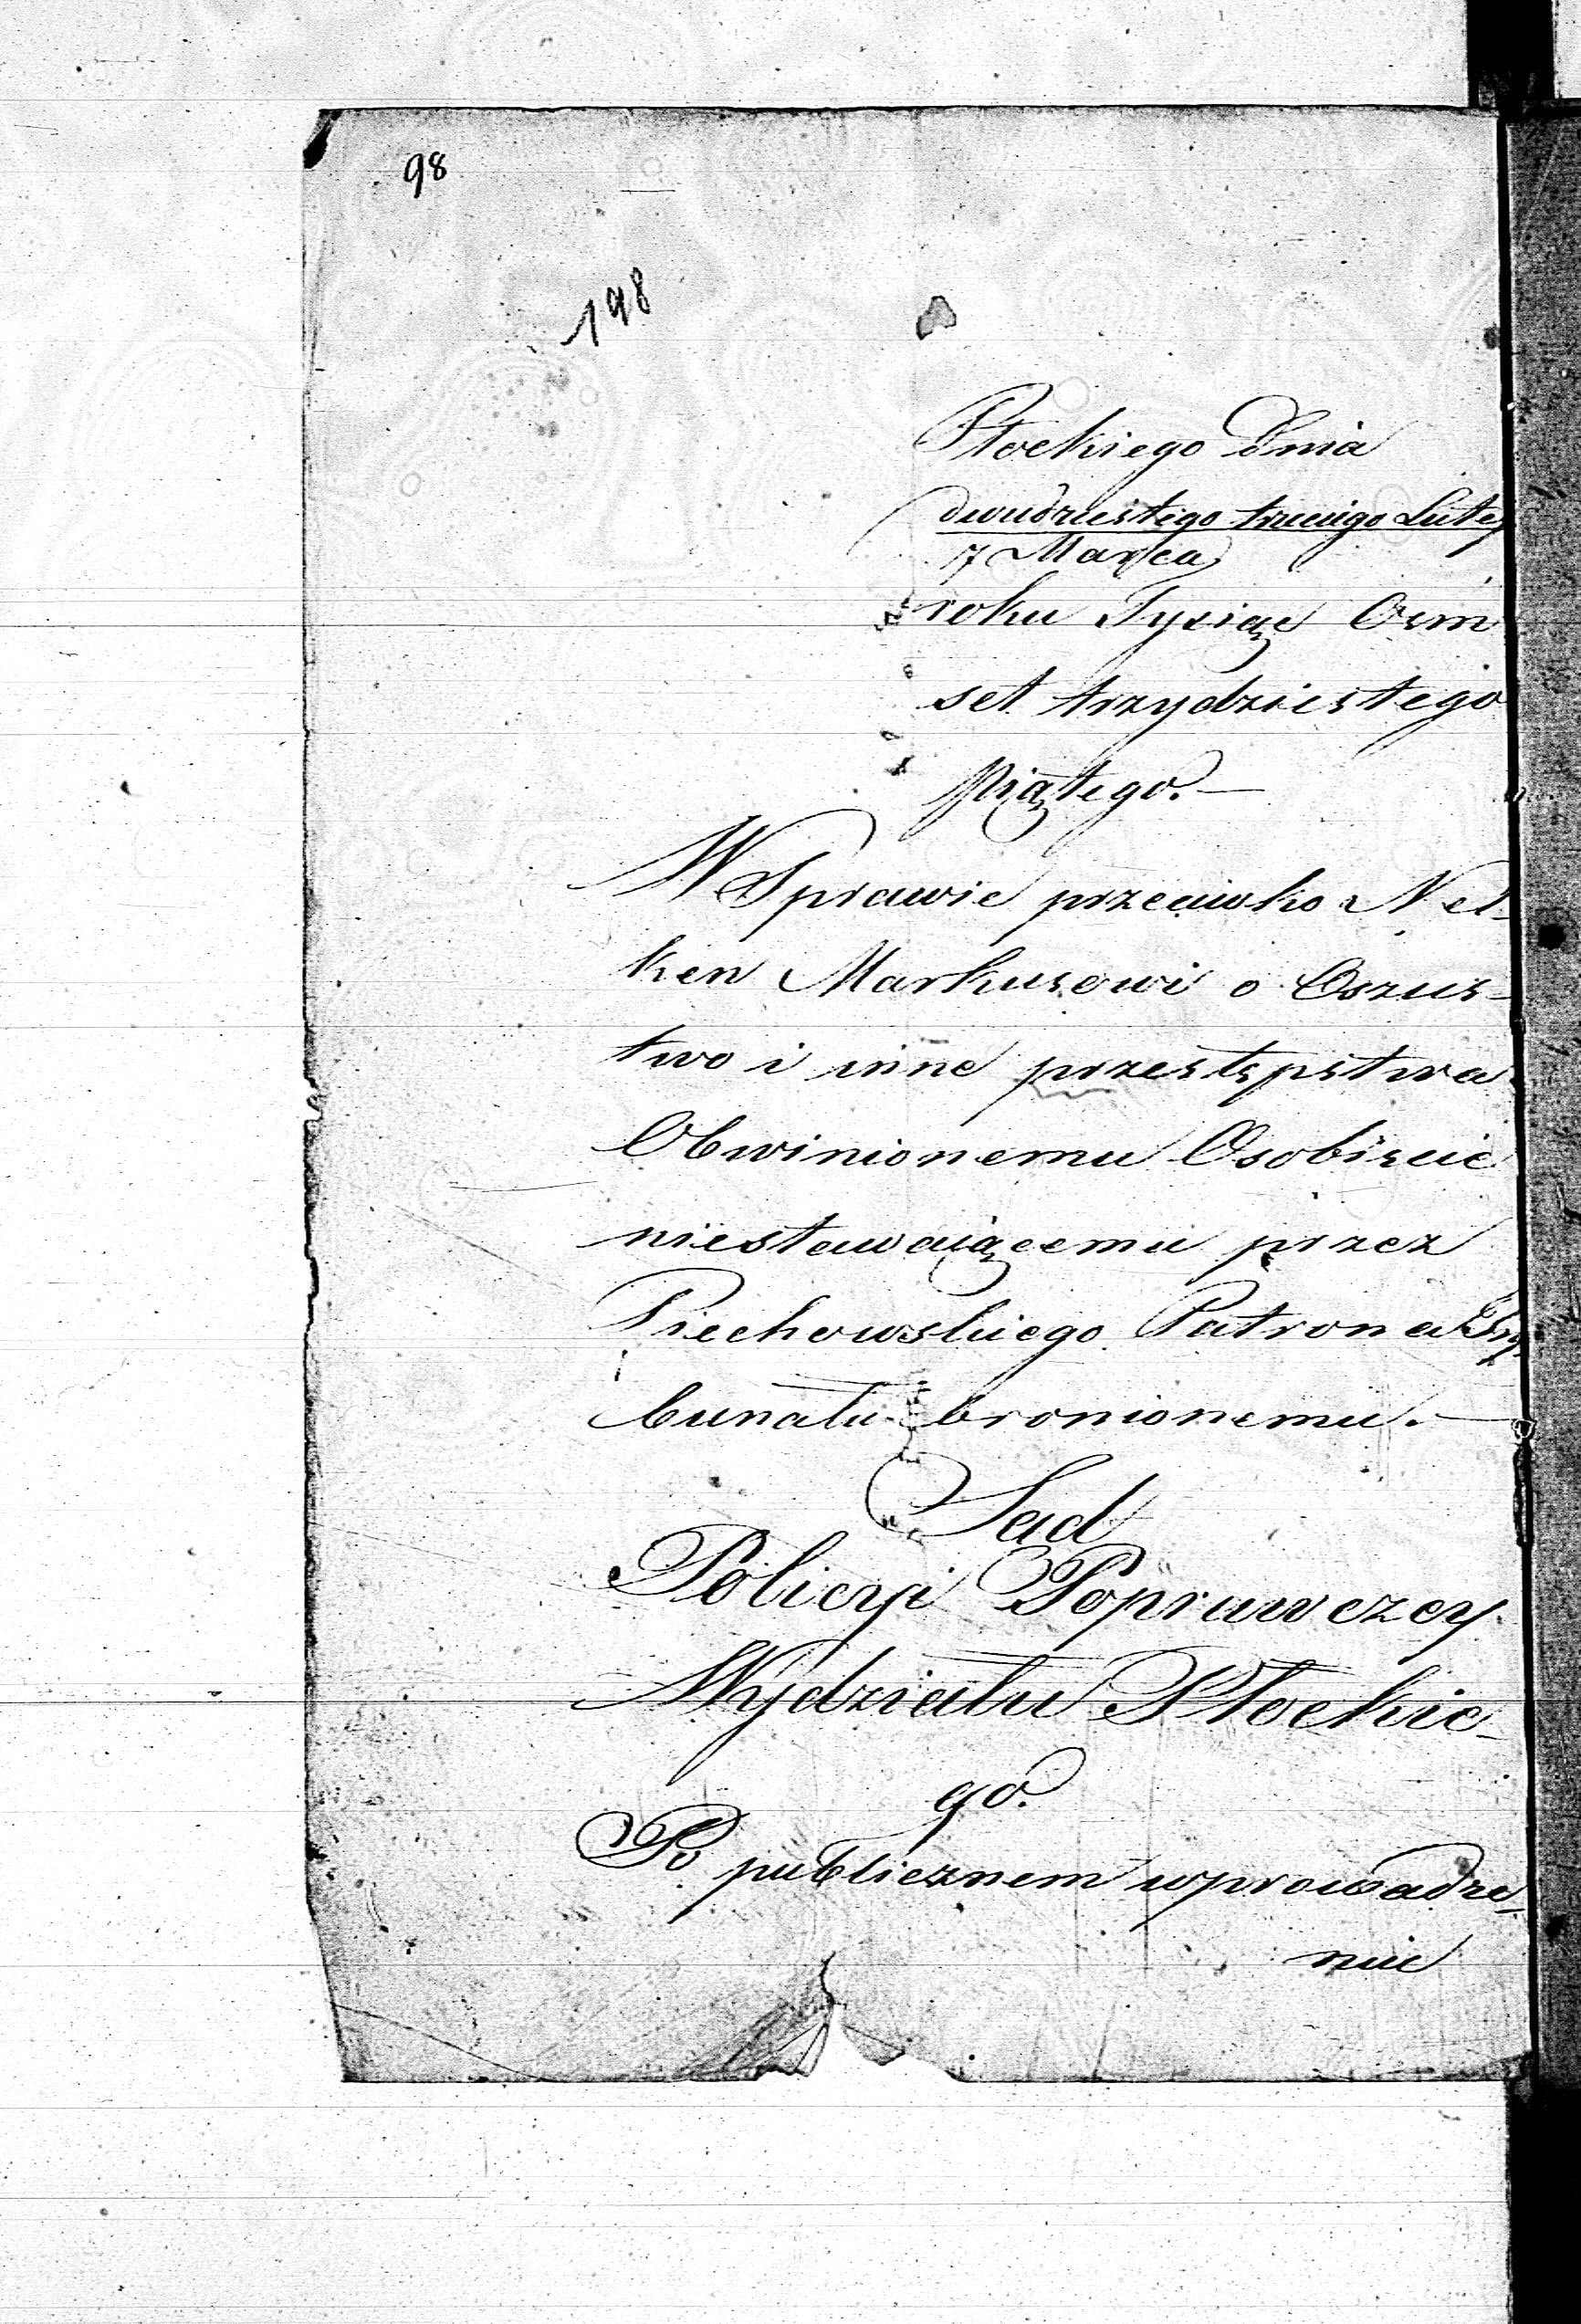 98
198
Płockiego Dnia
dwudziestego trzeciego Luteg
7 Marca
roku Tysiąc Osm
set trzydziestego
piątego. —
W Sprawie przeciwko Nel-
ken Markusowi o Oszus-
two i inne przestępstwa
Obwinionemu Osobiście
niestawaiącemu przez
Piechowskiego Patrona Try-
bunału bronionemu. —
Sąd
Policyi Poprawczey
Wydziału Płockie-
go.
Po publicznem wprowadze-
niu